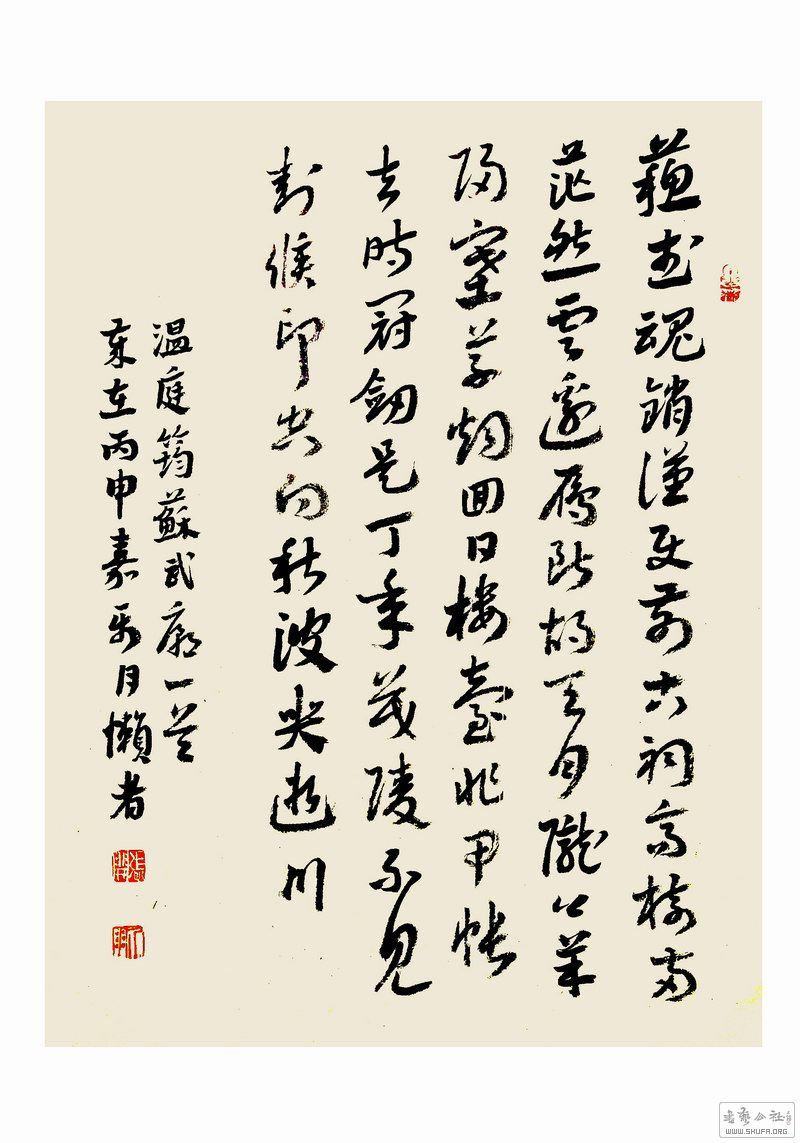 蘓武魂銷漢使前古祠高樹兩
茫然雲邊雁斷胡天月隴上羊
歸塞草烟囬日樓臺非甲帳
去時冠劍是丁年茂陵不見
封侯印空向秋波哭逝川
温庭筠蘇武廟一首
歲在丙申嘉平月懶者
书艺公社
WWW.SHUFA.ORG